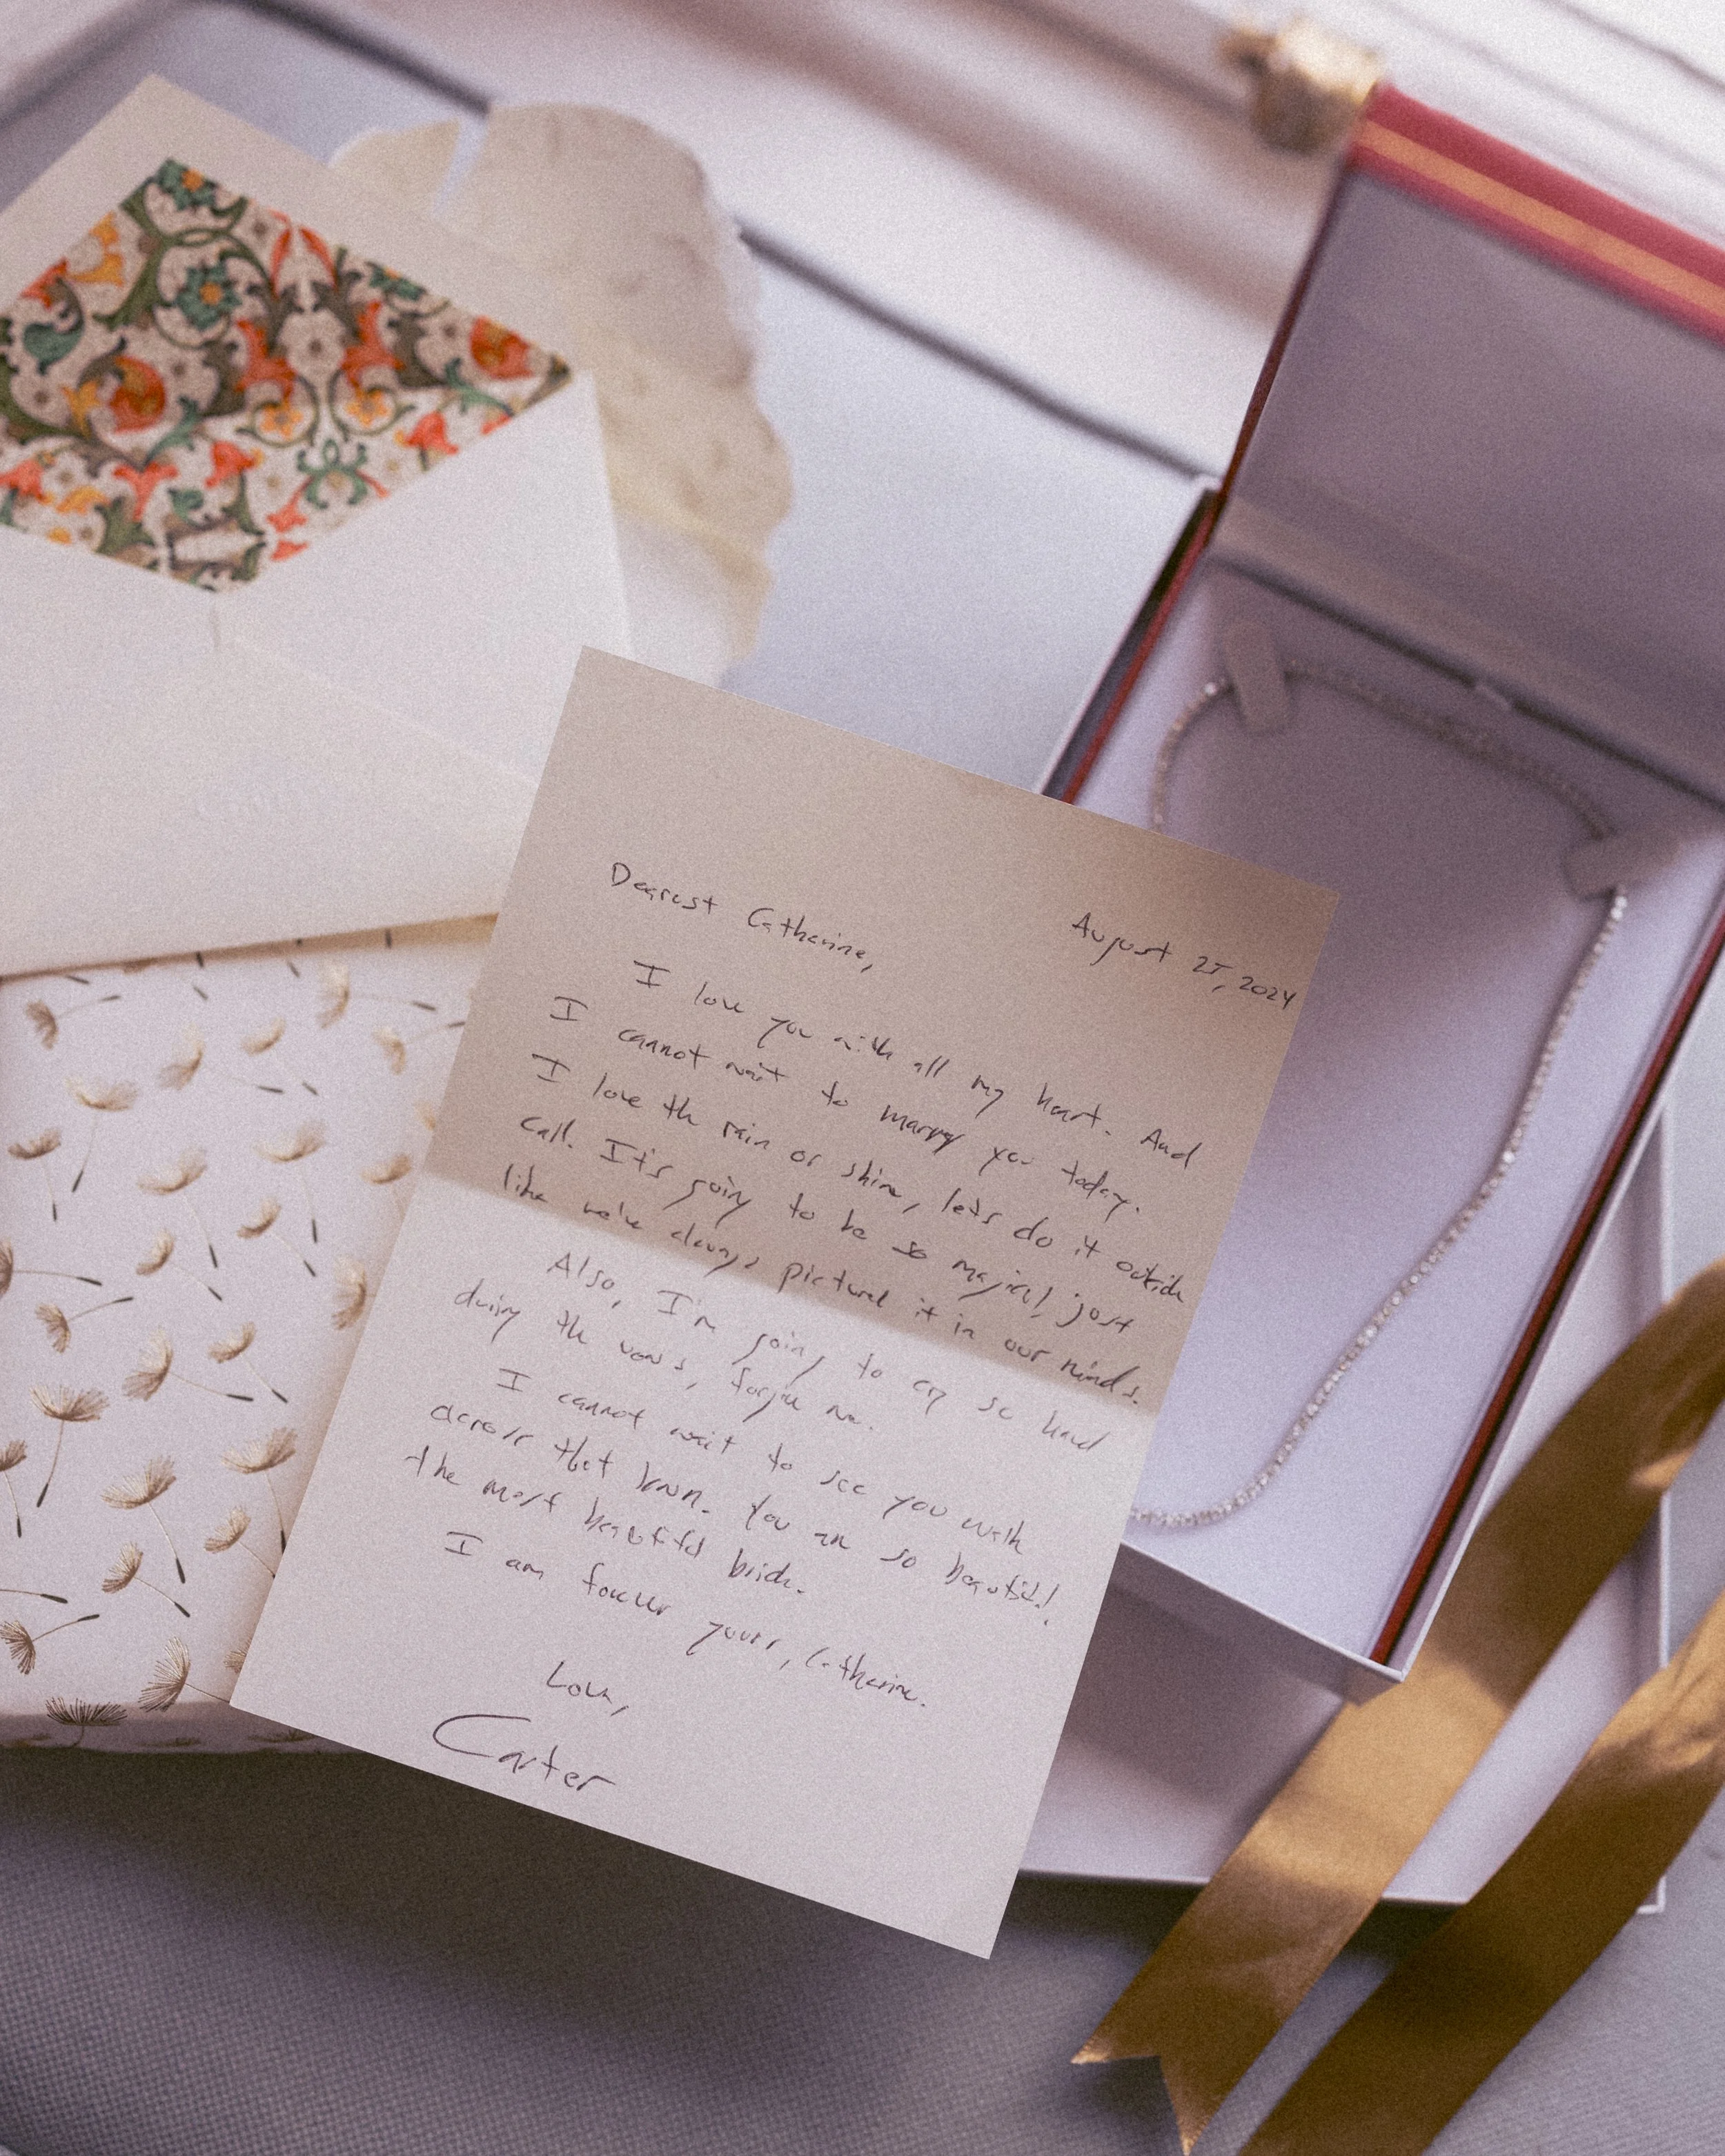 August 25, 2024
Dearest Catherine,
I love you with all my heart. And
I cannot wait to marry you today.
I love the rain or shine, let's do it outside
call. It's going to be so magical, just
like we've always pictured it in our minds.
Also, I'm going to cry so hard
during the vows, forgive me.
I cannot wait to see you walk
across that lawn. You are so beautiful!
the most beautiful bride.
I am forever yours, Catherine.
Love,
Carter